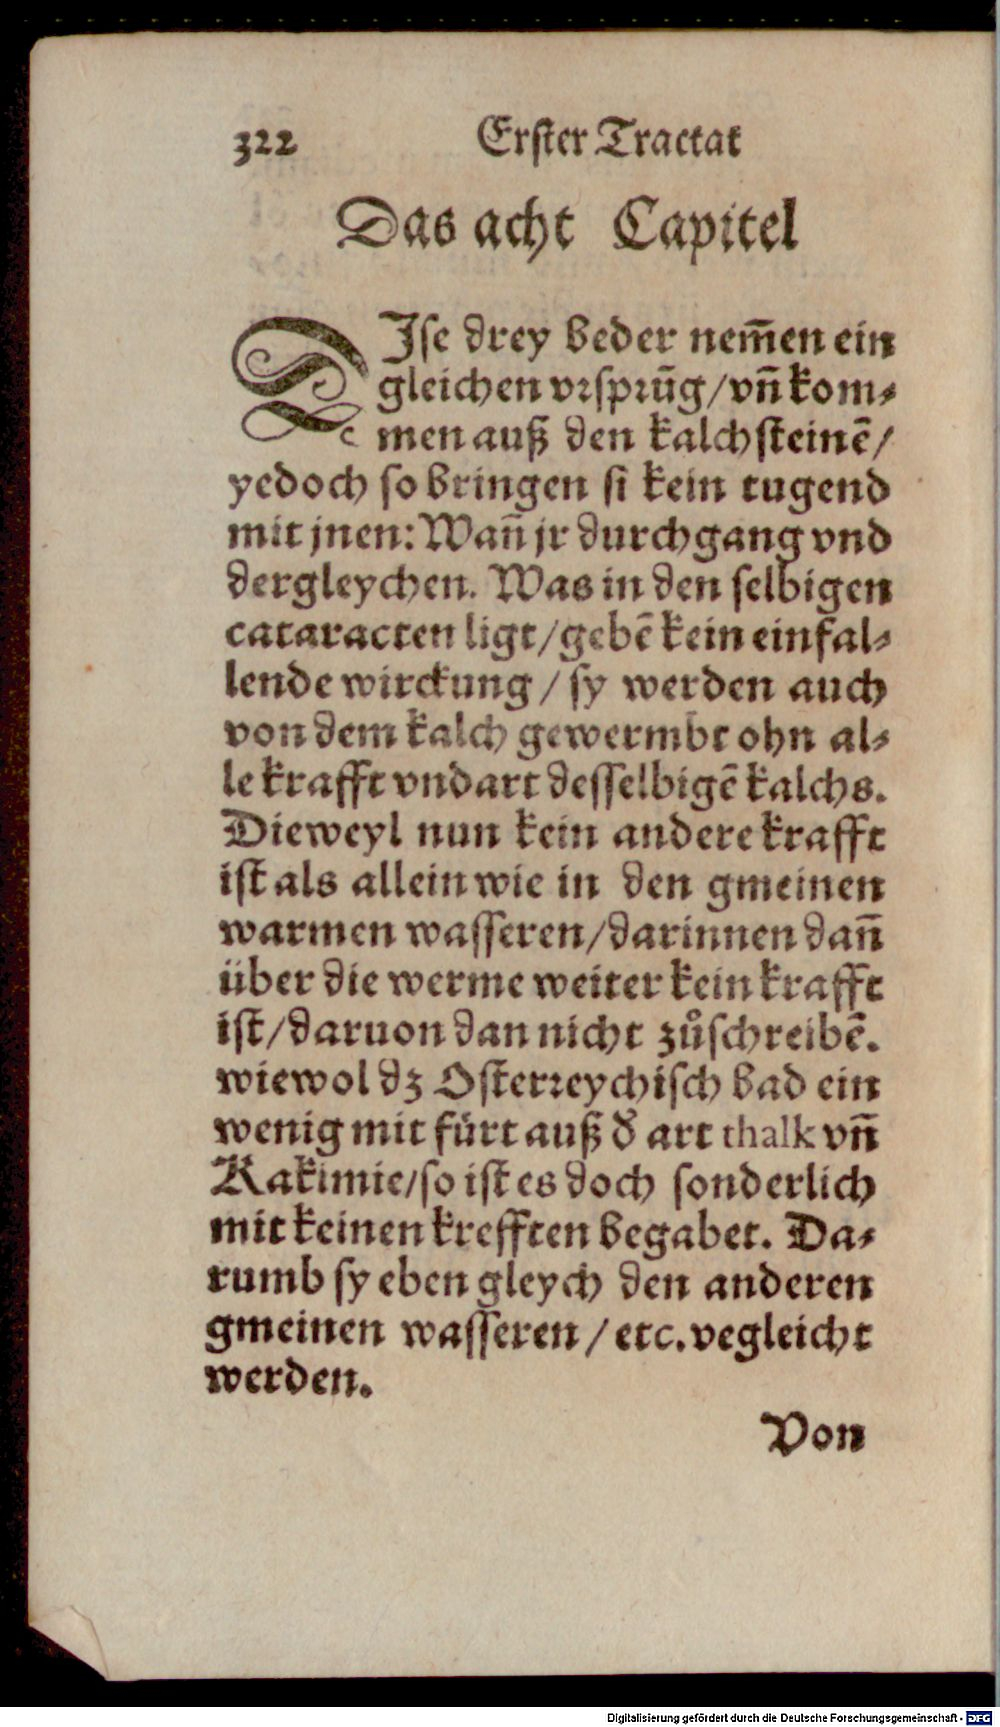 322 Erster Tractat
Das acht Capitel
DJse drey beder nem̃en ein
gleichen vrsprũg/vñ kom⸗
men auß den kalchsteinẽ/
yedoch so bringen si kein tugend
mit jnen: Wañ jr durchgang vnd
dergleychen. Was in den selbigen
cataracten ligt/gebẽ kein einfal⸗
lende wirckung / sy werden auch
von dem kalch gewermbt ohn al⸗
le krafft vnd art desselbigẽ kalchs.
Dieweyl nun kein andere krafft
ist als allein wie in den gmeinen
warmen wasseren/darinnen dañ
über die werme weiter kein krafft
ist/daruon dan nicht zůschreibẽ.
wiewol dz Osterreychisch bad ein
wenig mit fürt auß d̕ art thalk vñ
Kakimie/so ist es doch sonderlich
mit keinen krefften begabet. Da⸗
rumb sy eben gleych den anderen
gmeinen wasseren / etc. vegleicht
werden.
Von
Digitalisierung gefördert durch die Deutsche Forschungsgemeinschaft - DFG